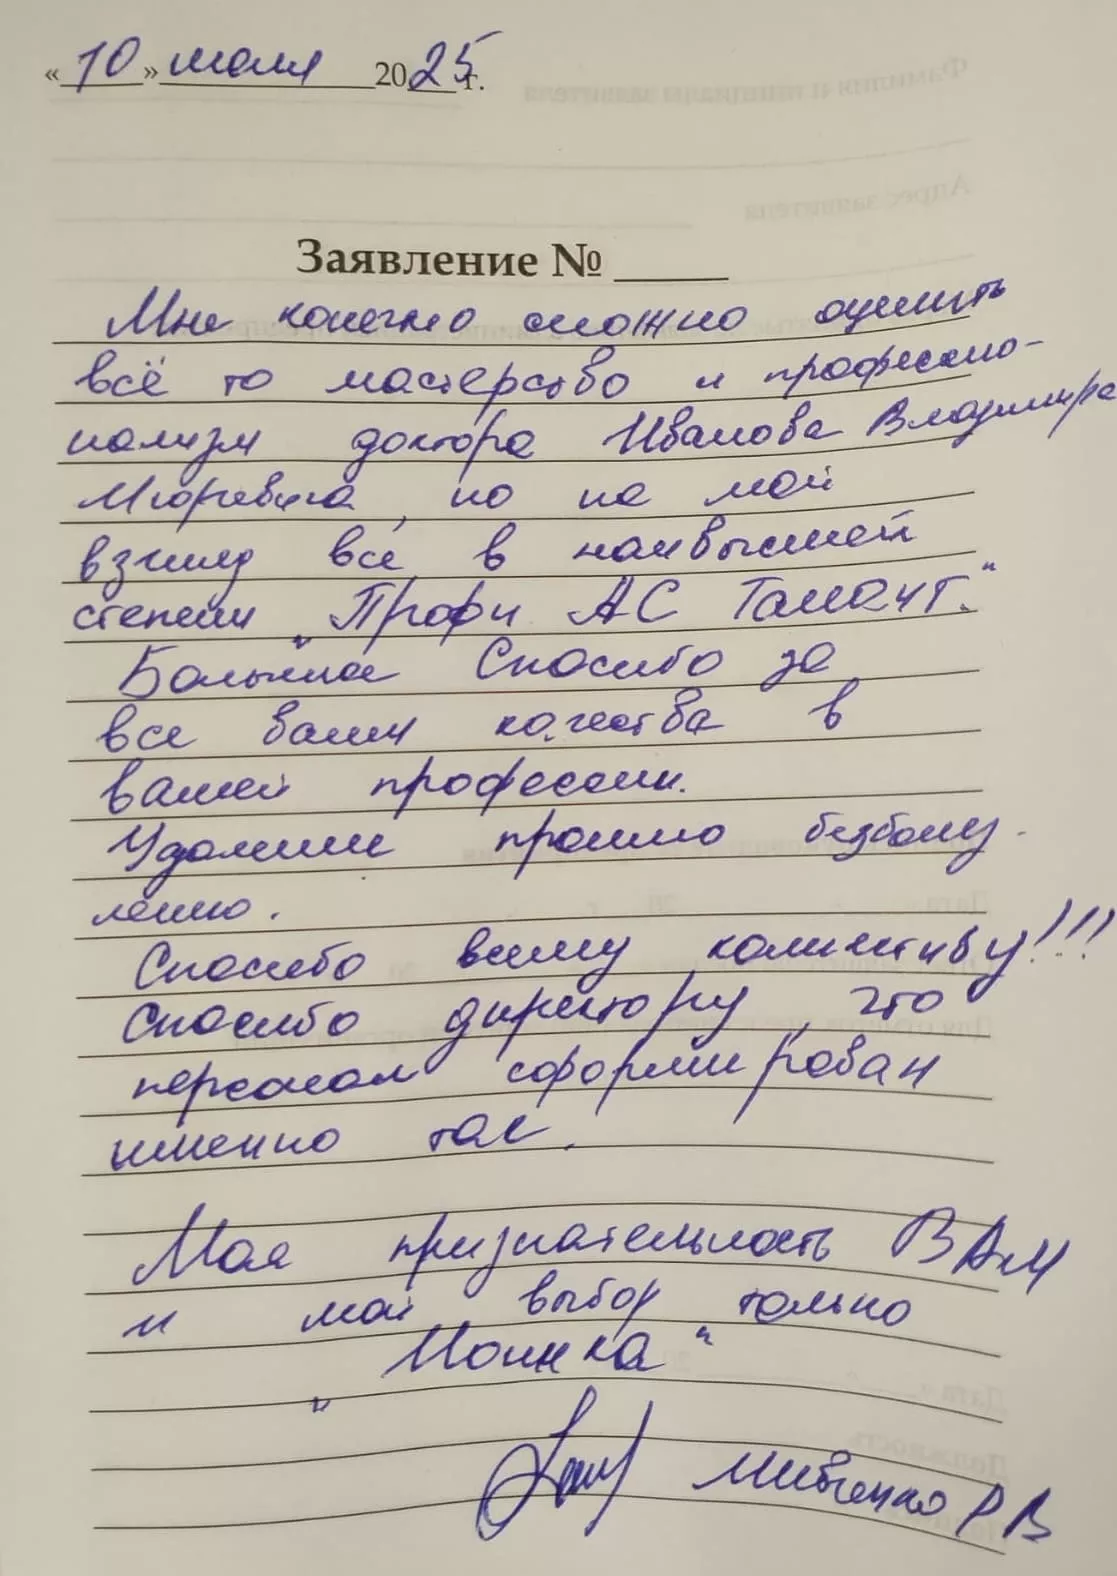 «10» июля 2025 г.
Заявление №
Мне конечно сложно оценить
всё то мастерство и професио-
нализм доктора Иванова Владимира
Игоревича, но на мой
взгляд всё в наивысшей
степени „Профи АС Талант."
Большое Спасибо за
все ваши качества в
вашей професии.
Удаление прошло безболез
ленно.
Спасибо всему коллективу!!!
Спасибо директору, что
персонал сформирован
именно так.
Моя признательность ВАМ
и мой выбор только
„